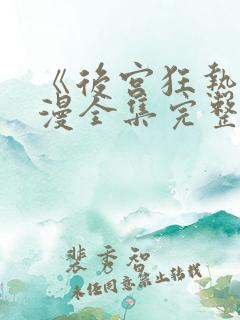 《后宫狂热
漫全集完整
裴秀智
未经同意禁止转载